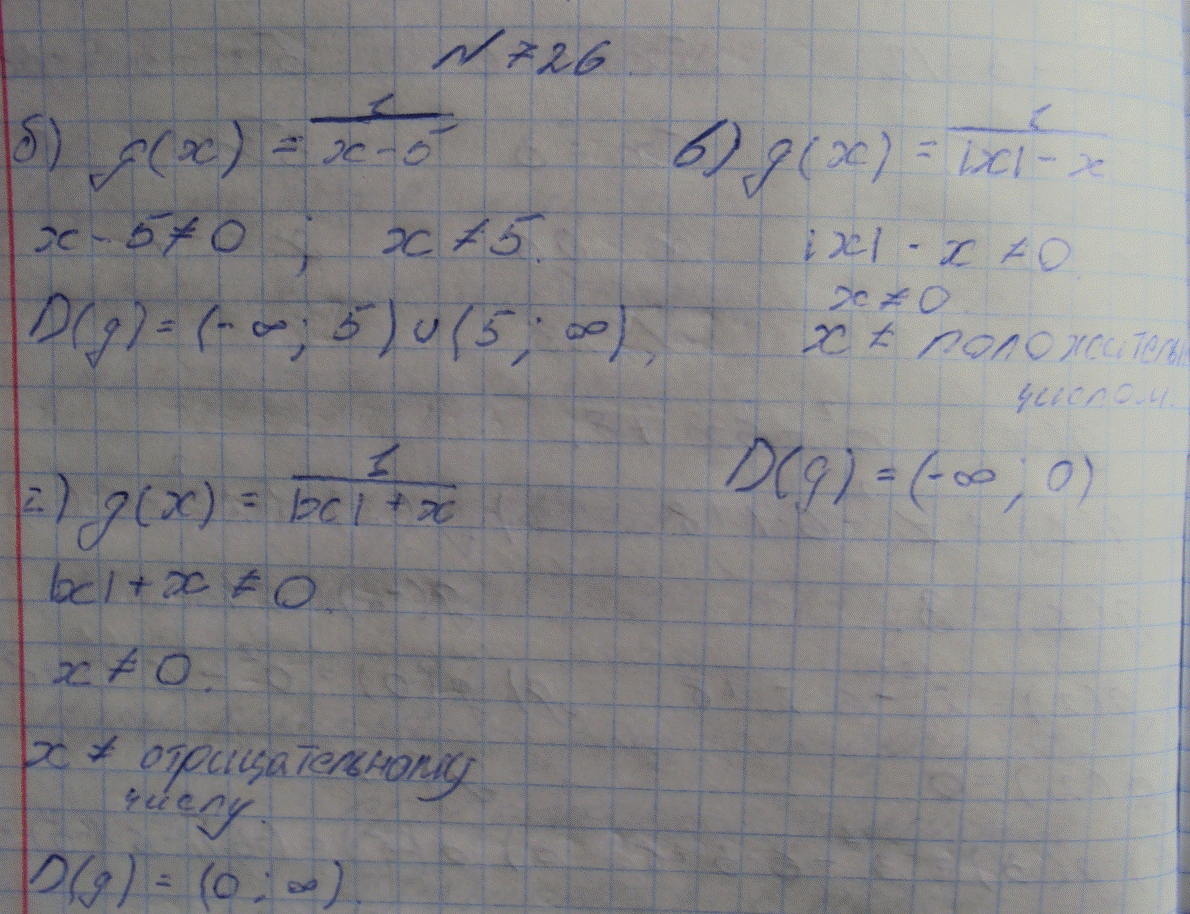 № 726.
б) g(x) = 1/(x-5)
x - 5 ≠ 0 ; x ≠ 5.
D(g) = (-∞; 5) ∪ (5; ∞),
в) g(x) = 1/(|x| - x)
|x| - x ≠ 0.
x ≠ 0
x ≠ положительн
числом.
D(g) = (-∞; 0)
г) g(x) = 1/(|x| + x)
|x| + x ≠ 0.
x ≠ 0.
x ≠ отрицательному
числу.
D(g) = (0; ∞)